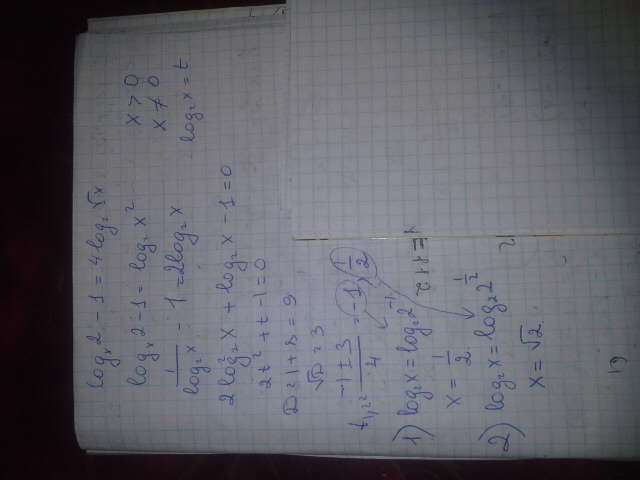 logₓ2 - 1 = 4log₂√x
logₓ2 - 1 = log₂x² x > 0
1/log₂x - 1 = 2log₂x x ≠ 0
log₂x = t
2log₂²x + log₂x - 1 = 0
2t² + t - 1 = 0
D = 1 + 8 = 9
√D = 3
t₁,₂ = (-1 ± 3)/4 = -1; 1/2
1) log₂x = log₂2⁻¹
x = 1/2
2) log₂x = log₂2^(1/2)
x = √2